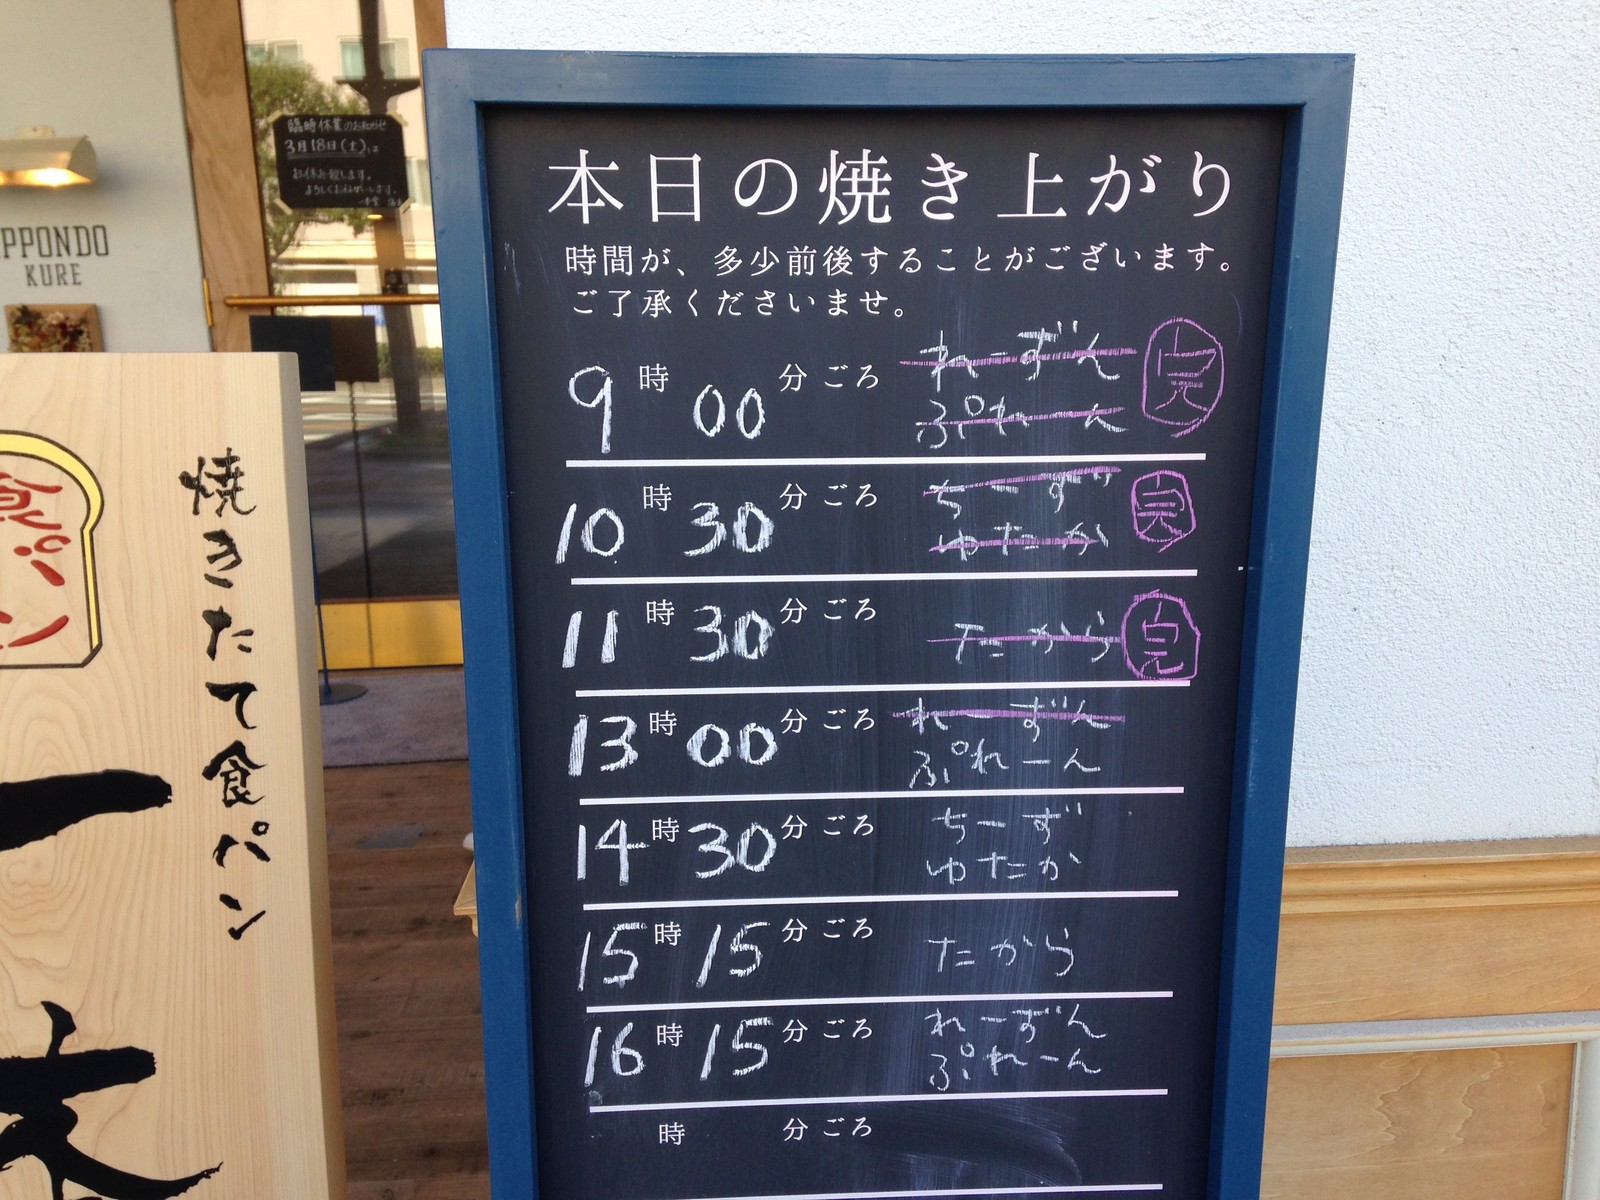 臨時休業のお知らせ
3月18日(土)は
お休み致します。
よろしくお願いします。
PPONDO
KURE
食パン
焼きたて食パン
一本
本日の焼き上がり
時間が、多少前後することがございます。
ご了承くださいませ。
9時00分ごろ れーずん 完
ぷれーん
10時30分ごろ ちーず 完
ゆたか
11時30分ごろ たから 完
13時00分ごろ れーずん
ぷれーん
14時30分ごろ ちーず
ゆたか
15時15分ごろ たから
16時15分ごろ れーずん
ぷれーん
時 分ごろ